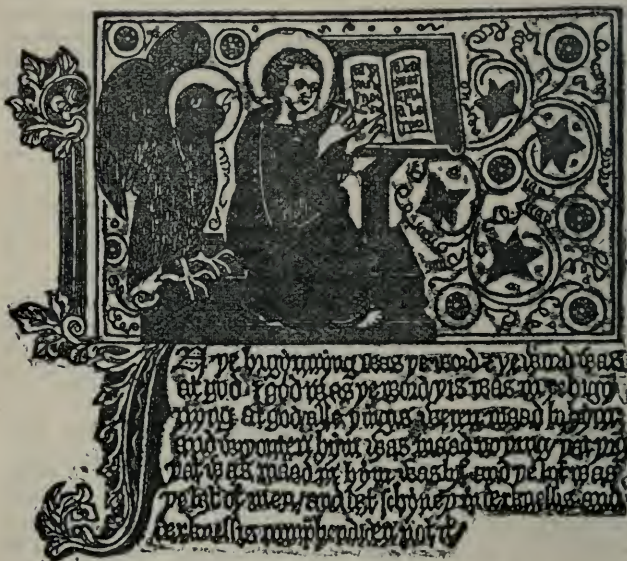 In þe bigynnyng was þe word & þe word was
at god & god was þe word þis was in þe bigyn
nyng at god alle þingis weren maad by hym
and wiþouten hym was maad no þing þat þing
þat is maad in hym was lif and þe lif was
þe liȝt of men / and liȝt schyneþ in derknessis and
derknessis comprehendiden not it /